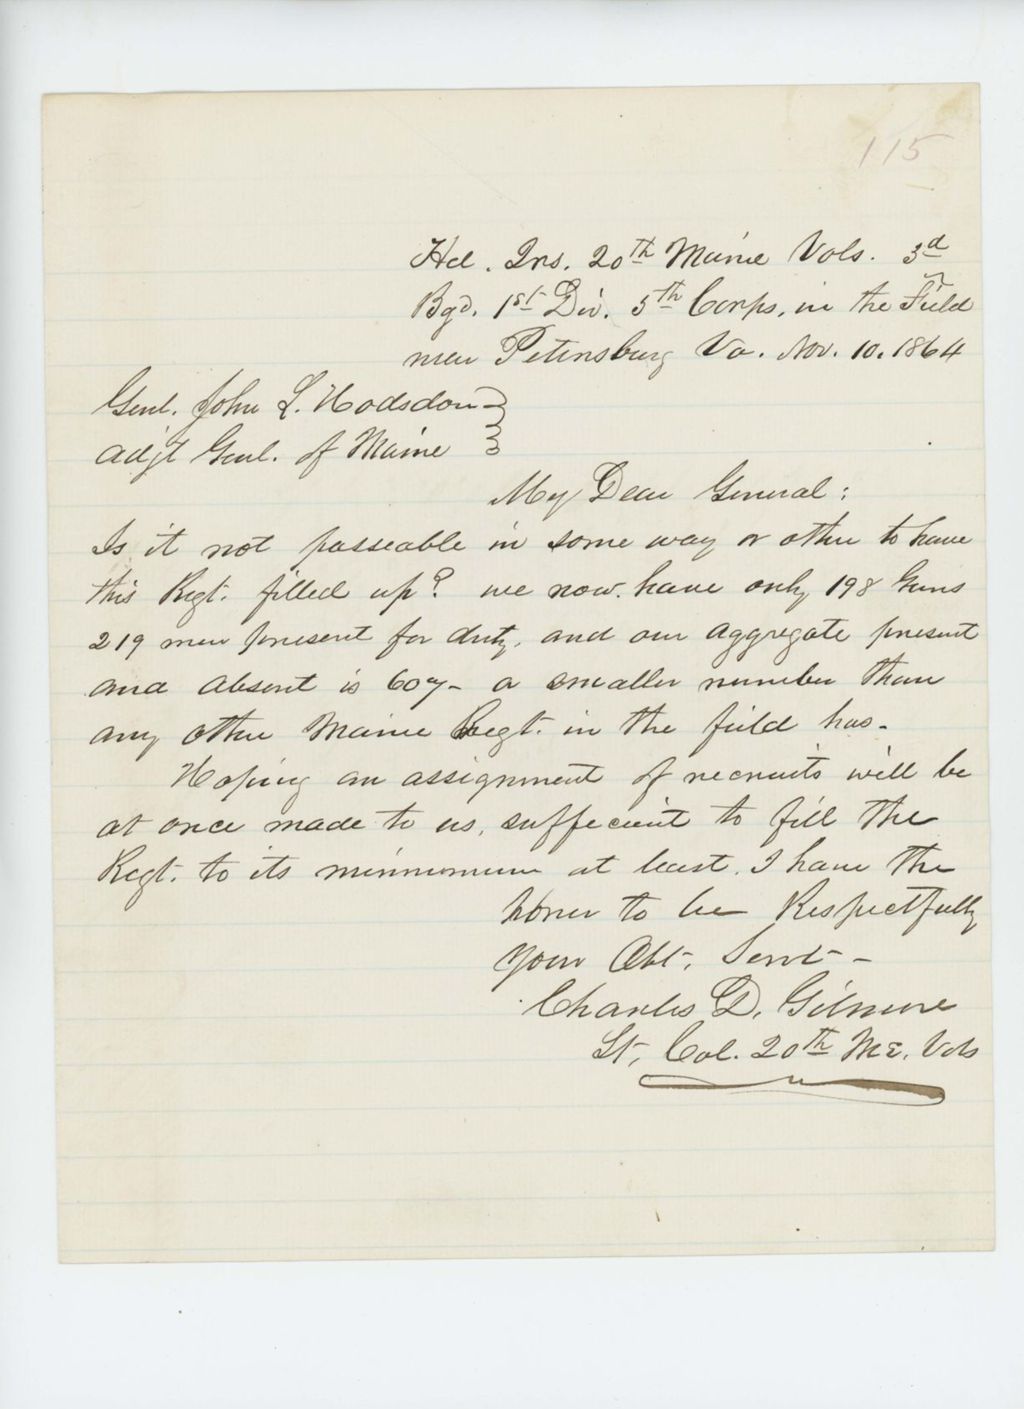 115
Hd. Qrs. 20th Maine Vols. 3d
Bgd. 1st Div. 5th Corps, in the Field
near Petersburg Va. Nov. 10. 1864
Genl. John L. Hodsdon
Adjt Genl. of Maine
My Dear General:
Is it not passeable in some way or other to have
this Regt. filled up? we now have only 198 Guns
219 men present for duty, and our aggregate present
and absent is 607 - a smaller number than
any other Maine Regt. in the field has.
Hoping an assignment of recruits will be
at once made to us, suffecient to fill the
Regt. to its minnimum at least. I have the
honor to be Respectfully
Your Obt. Servt -
Charles D. Gilmore
Lt. Col. 20th Me. Vols